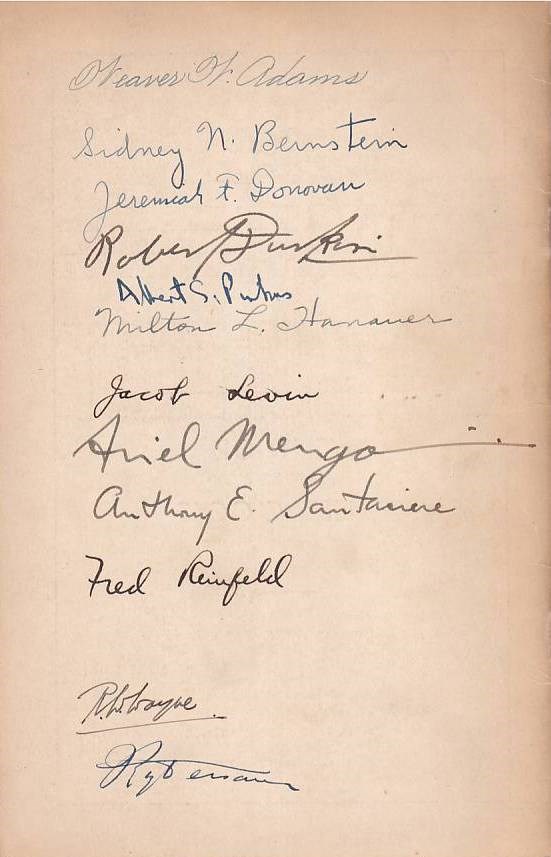 Weaver W. Adams
Sidney N. Bernstein
Jeremiah F. Donovan
Robert Durkin
Albert S. Pinkus
Milton L. Hanauer
Jacob Levin
Ariel Mengo
Anthony E. Santasiere
Fred Reinfeld
R.W. Wayne